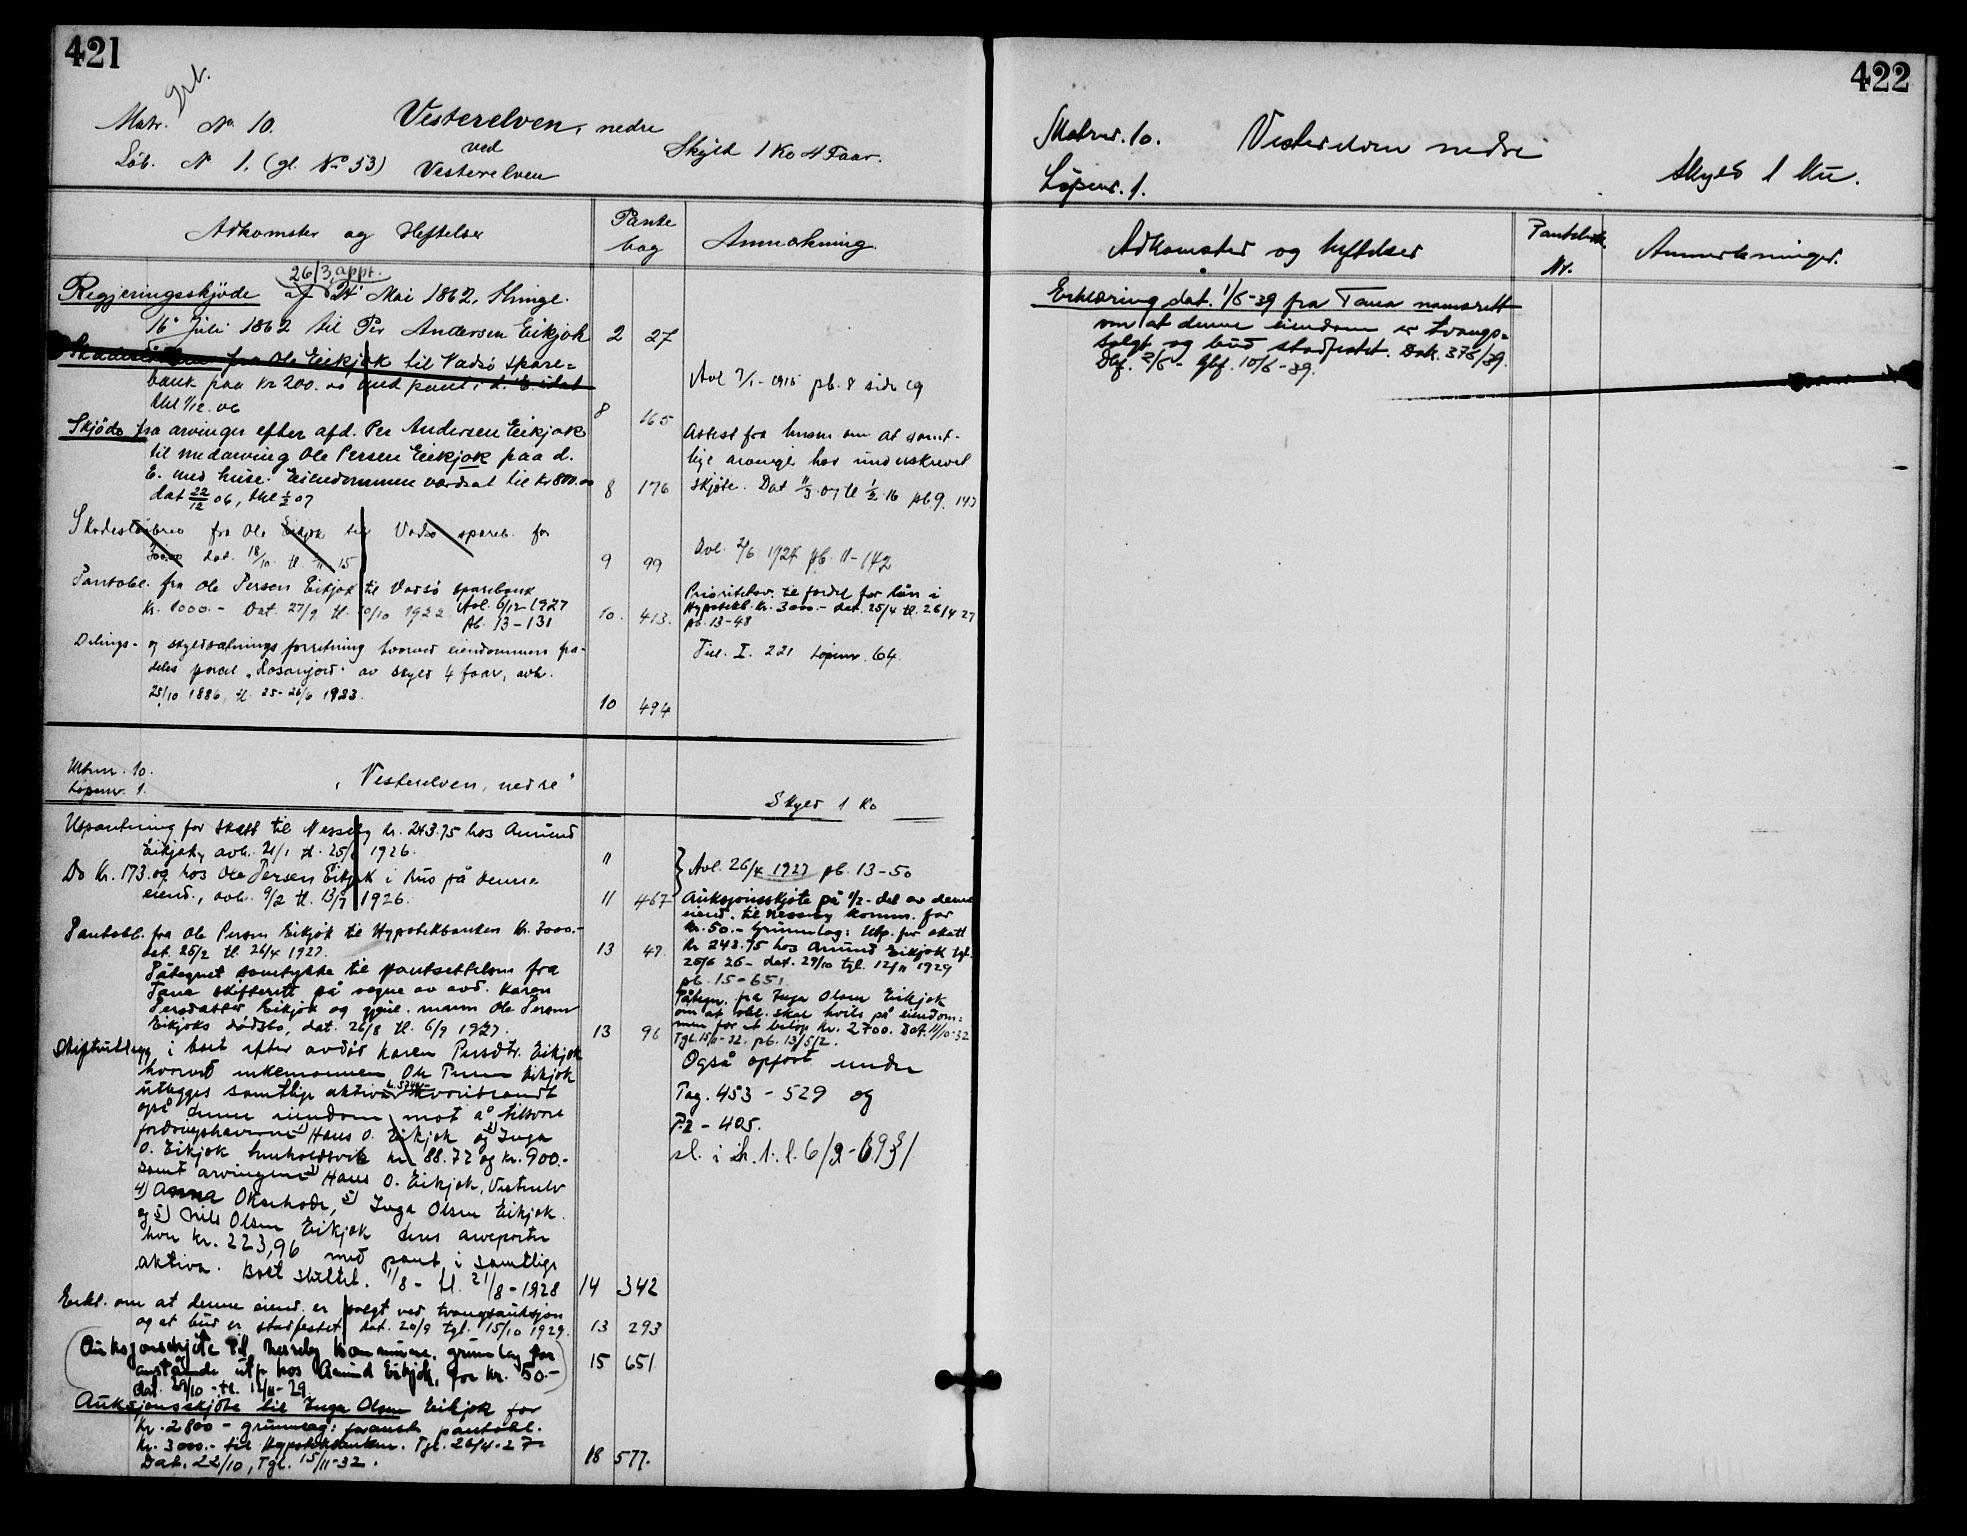 421
Matr. No 10. Vesterelven, nedre
ved
Löb. No 1. (gl. No 53) Vesterelven Skyld 1 Ko 4 Faar.
Adkomster og Heftelser Pante bog Anmerkning.
26/3, appr.
Regjeringsskjöde af 24' Mai 1862. Thingl.
16' Juli 1862 til Per Andersen Eikjok 2 27
fra Ole Eikjok til Vadsö Spare=
bank paa Kr 200.00 med pant i d. E. dat
thl 1/12. 06 8 165
Avl 7/1-1915 pb. 8 side 69
Skjöde fra arvinger efter afd. Per Andersen Eikjok
til medarving Ole Persen Eikjok paa d.
E. med huse. Eiendommen værdsat til kr 800.00 8 176
dat 22/12 06, thl 1/2 07
Attest fra lensm om at samt-
lige arvinger har underskrevet
skjöte. Dat 11/3 07 tl 1/2 16 pb 9. 147
Skadeslösbrev fra Ole Eikjok til Vadsö spareb. for
300.00 dat. 18/10 tl. /11 15 9 99
Avl. 2/6 1924 pb. 11-142
Pantobl. fra Ole Persen Eikjok til Vadsö Sparebank
Kr. 1000.- Dat. 27/9 tl. 10/10 1922. Avl. 6/12 1927 10. 413.
Pb. 13-131
Prioritetsv. til fordel for lån i
Hypotekb. Kr. 3000.- dat. 25/4 tl. 26/4 27
pb. 13-48
Delings- og skyldsætnings forretning hvorved eiendommen fra-
deles parcel "Rosanjord" av skyld 4 faar, avh.
25/10 1886, tl. 25-26/6 1923. 10 494
Fiel. I. 221 Löpenr. 64.
Matrnr. 10.
Löpenr. 1. "Vesterelven, nedre" Skyld 1 Ko
Utpantning for skatt til Nesseby kr. 243.75 hos Amund
Eikjok, avh. 21/1 tl. 25/ 1926. 11
Do Kr. 173.09 hos Ole Persen Eikjok i hus på denne
eiend., avh. 9/2 tl. 13/7 1926. 11 467
Avl. 26/4 1927 pb. 13-50
Pantobl. fra Ole Persen Eikjok til Hypotekbanken Kr. 3000.-
dat. 25/2 tl. 26/4 1927. 13 47.
Påtegnet samtykke til pantsettelsen fra
Tana skifterett på vegne av avd. Karen
Persdatter Eikjok og gjenl. mann Ole Persen
Eikjoks dödsbo, dat. 26/8 tl. 6/9 1927. 13 96
Auksjonsskjöte på 1/2-del av denne
eiend. til Nesseby komm. for
kr. 50.- Grunnlag: Utp. for skatt
Kr 243.75 hos Amund Eikjok tgl.
25/6 26- dat. 29/10 tgl. 12/11 1929
pb. 15-651
Påtegn. fra Inga Olsen Eikjok
om at obl. skal hvile på eiendom=
men for et belöp kr. 2700. Dat. 11/10-32
Tgl. 15/11-32. pb. 13/512.
Også opfört under
Pag. 453 - 529 og
- 405.
Skifteutlegg i boet efter avdöd Karen Persdtr. Eikjok
hvorved enkemannen Ole Persen Eikjok
utlegges samtlige aktiva hvoriblandt
også denne eiendom mot å tilsvare
fordringshaverne 1) Hans O. Eikjok og 2) Inga
O. Eikjok henholdsvis kr. 88.72 og kr. 900.-
samt arvingene 3) Hans O. Eikjok, Vesterelv
4) Anna, 5) Inga Olsen Eikjok
og Nils Olsen Eikjok deres arveporter
hver kr. 223,96 med pant i samtlige
aktiva. Boet sluttet. 1/8 - tl. 21/8-1928 14 342
Erkl. om at denne eiend. er solgt ved tvangsauksjon
og at bud er stadfestet dat. 20/9 tgl. 15/10 1929. 13 293
(Auksjonsskjöte til Nesseby kommune, grunnlag for
anstående utp. hos Amund Eikjok, for kr. 50.-) 15 651
dat. 29/10 - tl. 12/11-29.
Auksjonsskjöte til Inga Olsen Eikjok for
Kr. 2800 - grunnlag: foranst. pantobl.
Kr. 3000.- til Hypotekbanken. Tgl. 26/4-27
Dat. 22/10, Tgl. 15/11-32. 18 577.
422
Matrnr. 10. Vesterelven nedre
Löpenr. 1. Skyld 1 ku.
Adkomster og heftelser Pantebok. Nr. Anmerkninger.
Erklæring dat. 1/6-39 fra Tana namsrett
om at denne eiendom er tvangs=
solgt og bud stadfestet. Dok. 376/39.
Dbf. 2/6 - Gbf. 10/6-39.